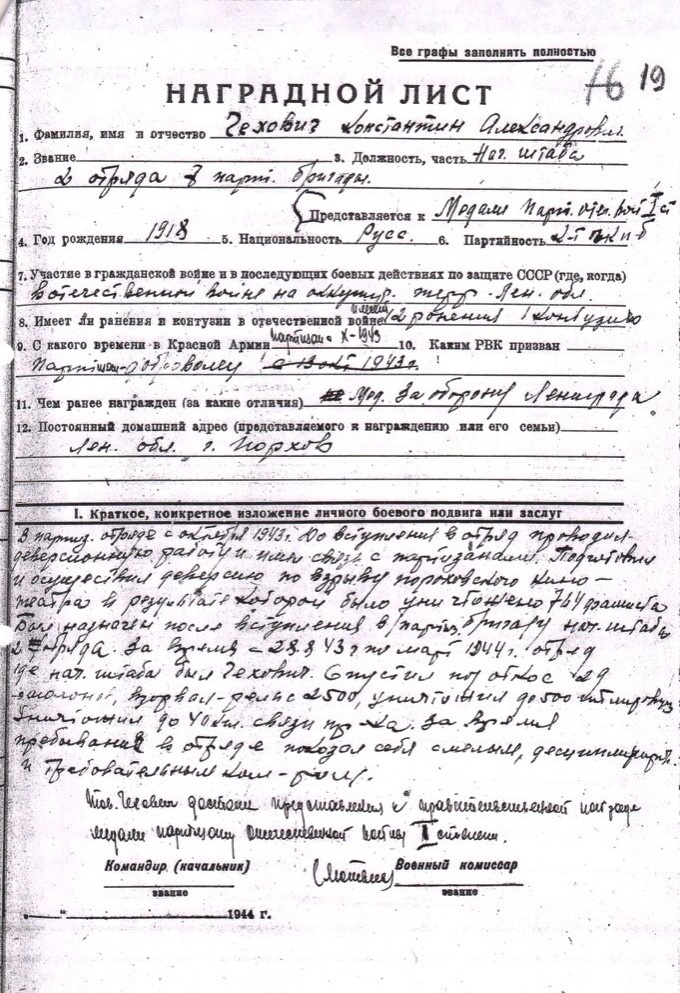 Все графы заполнять полностью
16 19
НАГРАДНОЙ ЛИСТ
1. Фамилия, имя и отчество Чехович Константин Александрович
2. Звание 3. Должность, часть Нач. штаба
2 отряда 7 парт. бригады.
Представляется к Медали Парт. отеч. войн I ст
4. Год рождения 1918 5. Национальность Русс. 6. Партийность
7. Участие в гражданской войне и в последующих боевых действиях по защите СССР (где, когда)
В отечественной войне на оккупир. терр. Лен. обл.
8. Имеет ли ранения и контузии в отечественной войне имеет 2 ранения 1 контузию
9. С какого времени в Красной Армии партизан с X-1943 10. Каким РВК призван
Партизан-доброволец с 13 окт 1943 г.
11. Чем ранее награжден (за какие отличия) Мед. За оборону Ленинграда
12. Постоянный домашний адрес (представляемого к награждению или его семьи)
Лен. обл. г. Порхов
I. Краткое, конкретное изложение личного боевого подвига или заслуг
В партиз. отряде с октября 1943 г. До вступления в отряд проводил
диверсионную работу и имел связь с партизанами. Подготовил
и осуществил диверсию по взрыву порховского кино-
театра в результате которой было уничтожено 764 фашиста
Был назначен после вступления в партиз. бригаду нач. штаба
2 отряда. За время с 28.8 43 г по март 1944 г. отряд
где нач. штаба был Чехович. Спустил под откос
эшелонов, взорвал рельс 2500, уничтожил до 500 гитлеровцев
Уничтожил до 40 км. связи пр-ка. За время
пребывания в отряде показал себя смелым, дисциплинир.
и требовательным ком-ром.
Тов. Чехович достоин представления к правительственной награде
медали партизану отечественной войны I степени.
Командир (начальник) Военный комиссар
звание звание
" " 1944 г.